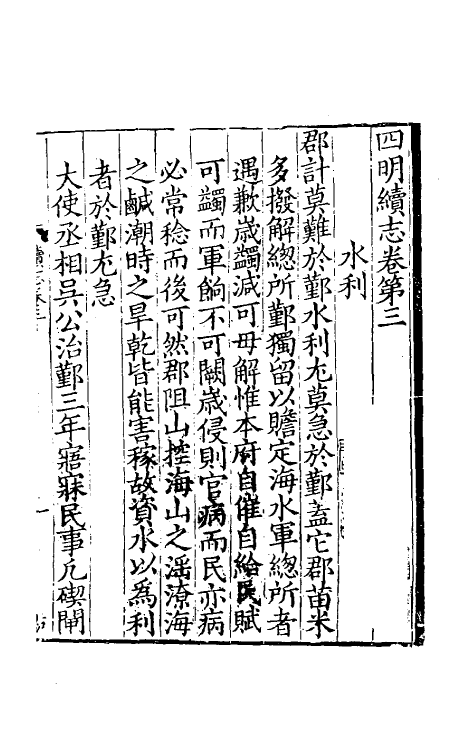 四明續志卷第三
水利
郡計莫難於鄞水利尤莫急於鄞蓋它郡苗米
多撥解總所鄞獨留以贍定海水軍總所者
遇歉歲蠲減可毋解惟本府自催自給民賦
可蠲而軍餉不可闕歲侵則官病而民亦病
必常稔而後可然郡阻山控海山之淫潦海
之鹹潮時之旱乾皆能害稼故資水以爲利
者於鄞尤急
大使丞相吳公治鄞三年寤寐民事凡碶閘